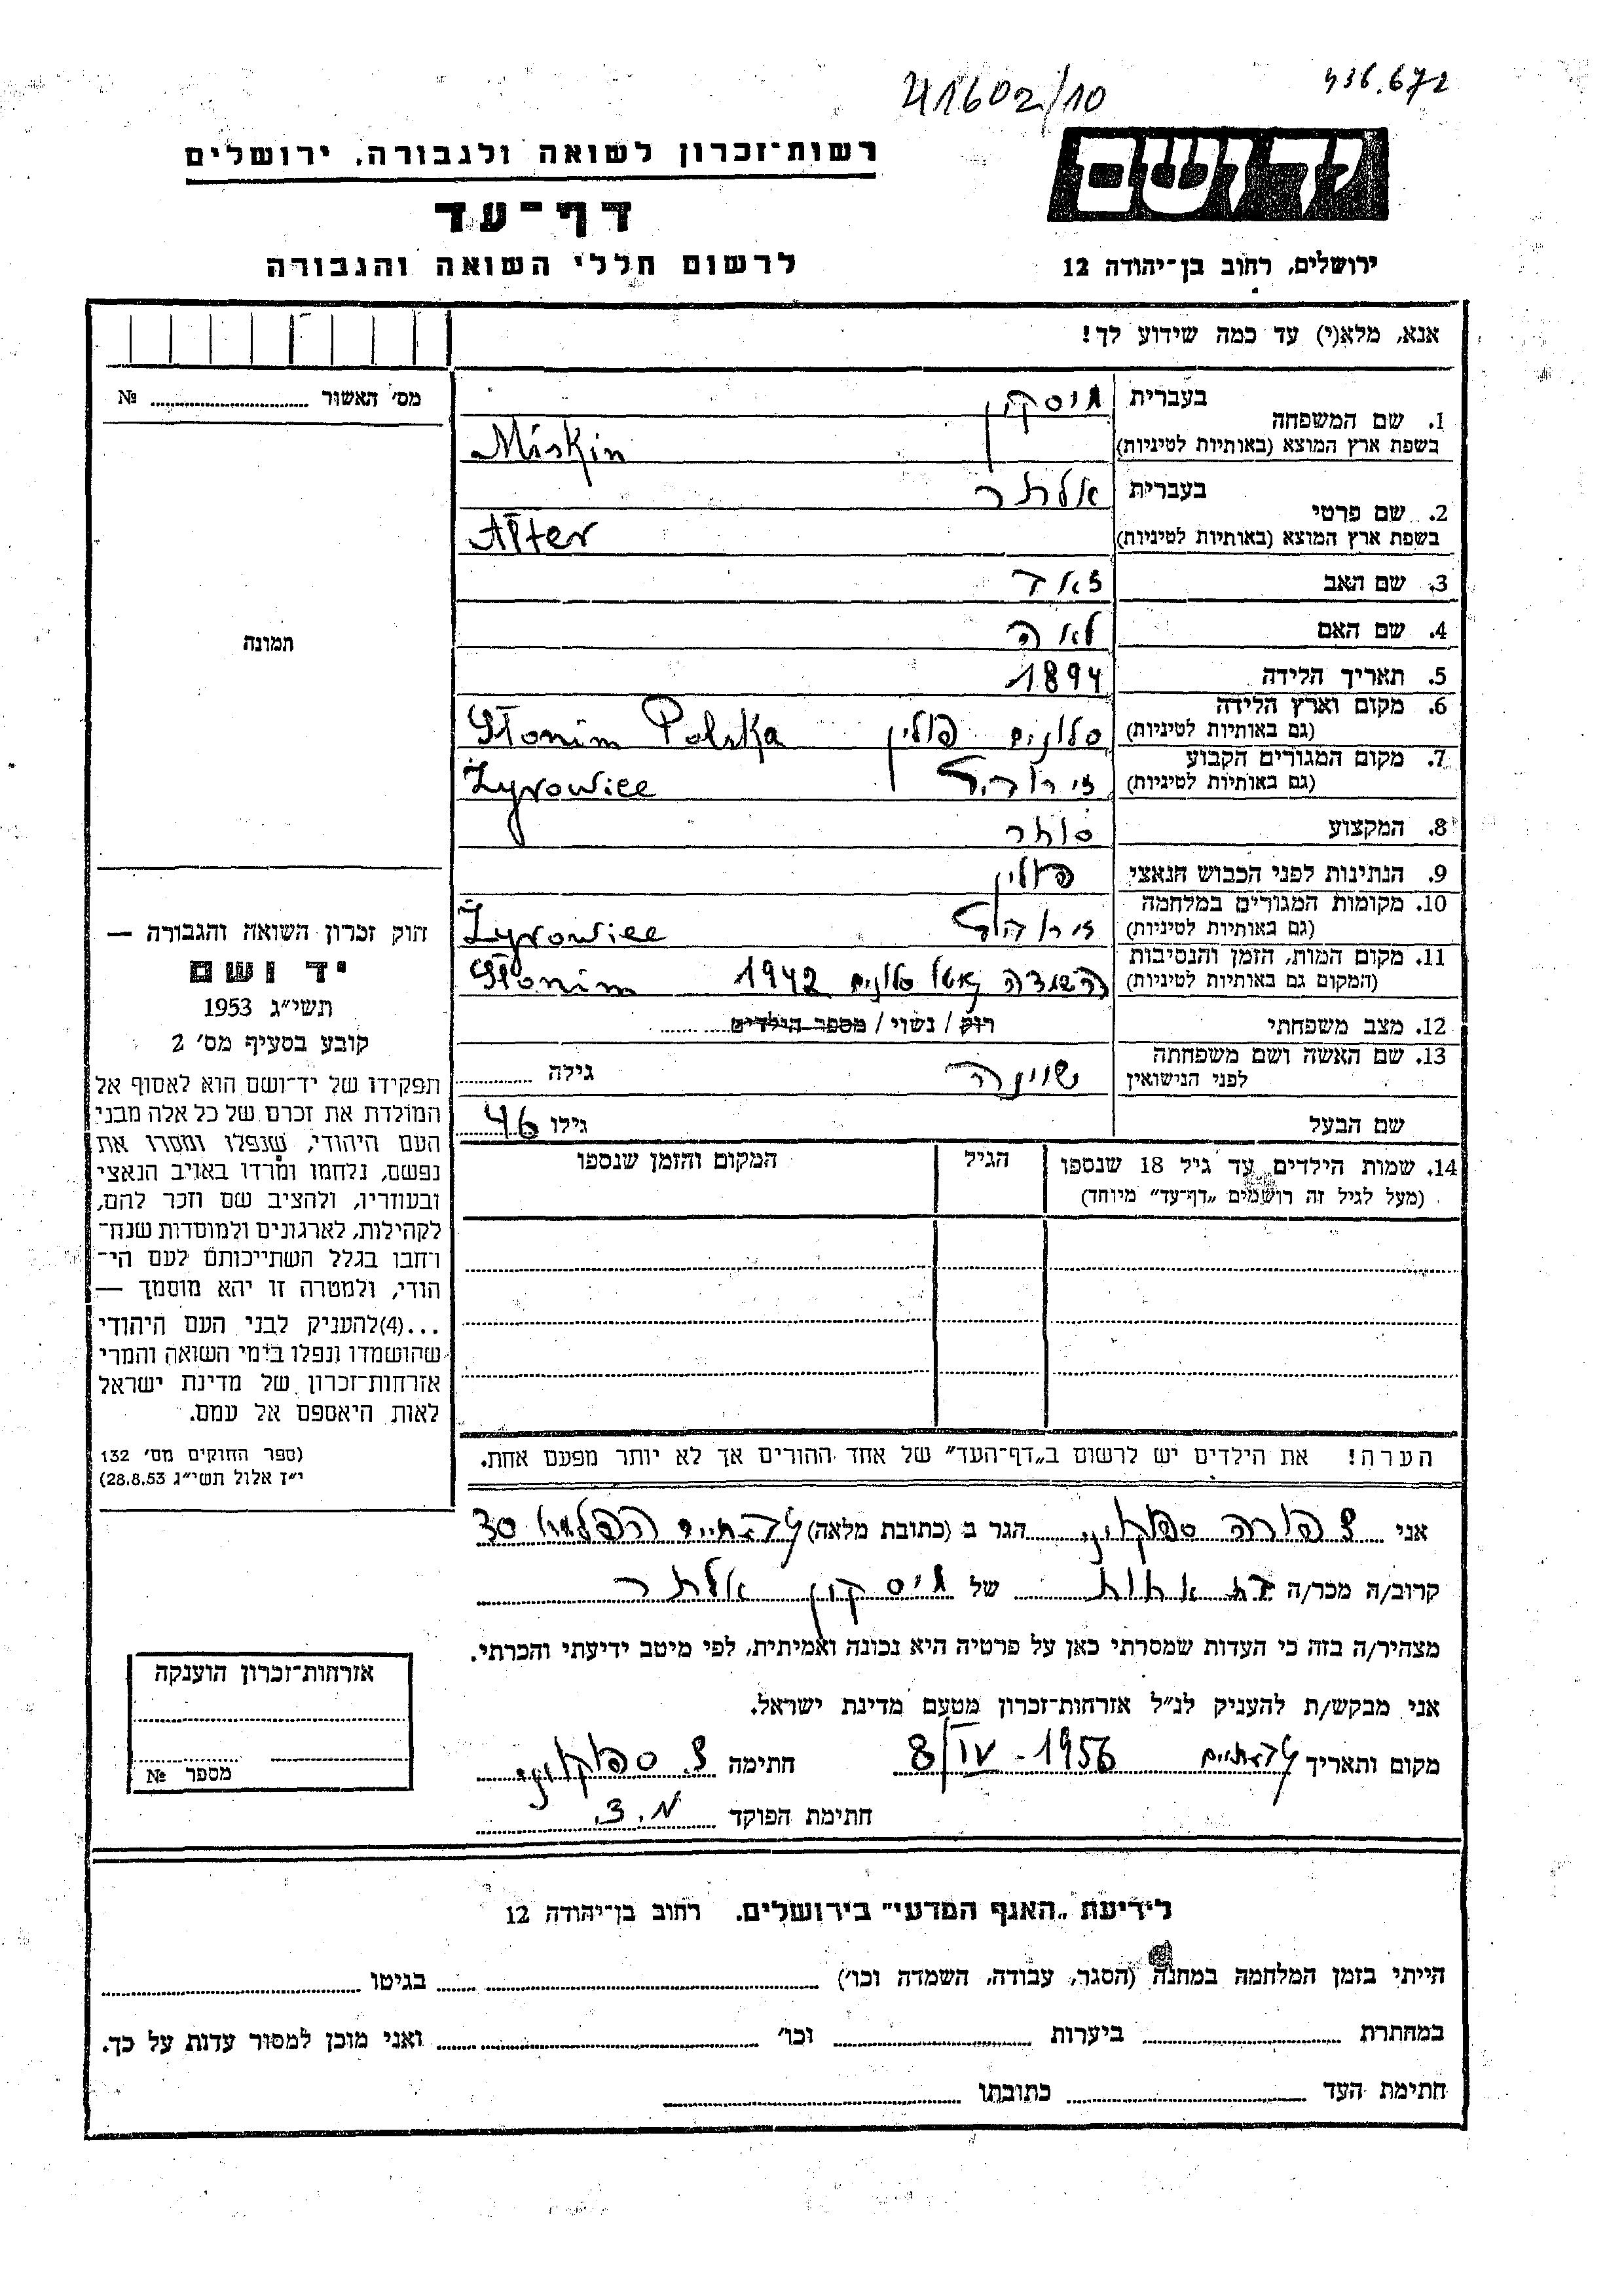 41602/10
436.672
רשות־זכרון לשואה ולגבורה, ירושלים
יד ושם
דף־עד
לרשום חללי השואה והגבורה
ירושלים, רחוב בן־יהודה 12
אנא, מלא(י) עד כמה שידוע לך!
מס׳ האשור № 
תמונה
1. שם המשפחה בעברית מיסקין
בשפת ארץ המוצא (באותיות לטיניות) Miskin
2. שם פרטי בעברית אלתר
בשפת ארץ המוצא (באותיות לטיניות) Alter
3. שם האב זאד
4. שם האם לאה
5. תאריך הלידה 1894
6. מקום וארץ הלידה
(גם באותיות לטיניות) סלונים פולין Słonim Polska
7. מקום המגורים הקבוע
(גם באותיות לטיניות) Żyrowice
8. המקצוע סוחר
9. הנתינות לפני הכבוש הנאצי פולין
10. מקומות המגורים במלחמה
(גם באותיות לטיניות) Żyrowice
11. מקום המות, הזמן והנסיבות
(המקום גם באותיות לטיניות) השמדה סלונים 1942 Słonim
12. מצב משפחתי רוק / נשוי / מספר הילדים
13. שם האשה ושם משפחתה
לפני הנישואין שיינה גילה
שם הבעל גילו 46
14. שמות הילדים עד גיל 18 שנספו
(מעל לגיל זה רושמים „דף־עד״ מיוחד)
הגיל
המקום והזמן שנספו
הערה! את הילדים יש לרשום ב„דף־העד״ של אחד ההורים אך לא יותר מפעם אחת.
חוק זכרון השואה והגבורה —
יד ושם
תשי״ג 1953
קובע בסעיף מס׳ 2
תפקידו של יד־ושם הוא לאסוף אל
המולדת את זכרם של כל אלה מבני
העם היהודי, שנפלו ומסרו את
נפשם, נלחמו ומרדו באויב הנאצי
ובעוזריו, ולהציב שם וזכר להם,
לקהילות, לארגונים ולמוסדות שנח־
רחבו בגלל השתייכותם לעם הי־
הודי, ולמטרה זו יהא מוסמך —
...(4)להעניק לבני העם היהודי
שהושמדו ונפלו בימי השואה והמרי
אזרחות־זכרון של מדינת ישראל
לאות היאספם אל עמם.
(ספר החוקים מס׳ 132
י״ז אלול תשי״ג 28.8.53)
אני צפורה הגר ב (כתובת מלאה) 30
קרוב/ה מכר/ה בת אחות של מיסקין אלתר
מצהיר/ה בזה כי העדות שמסרתי כאן על פרטיה היא נכונה ואמיתית, לפי מיטב ידיעתי והכרתי.
אני מבקש/ת להעניק לנ״ל אזרחות־זכרון מטעם מדינת ישראל.
מקום ותאריך 8/IV - 1956 חתימה
חתימת הפוקד מ.צ.
אזרחות־זכרון הוענקה
מספר №
לידיעת „האגף המדעי״ בירושלים. רחוב בן־יהודה 12
הייתי בזמן המלחמה במחנה (הסגר, עבודה, השמדה וכו׳) בגיטו
במחתרת ביערות וכו׳ ואני מוכן למסור עדות על כך.
חתימת העד כתובתו